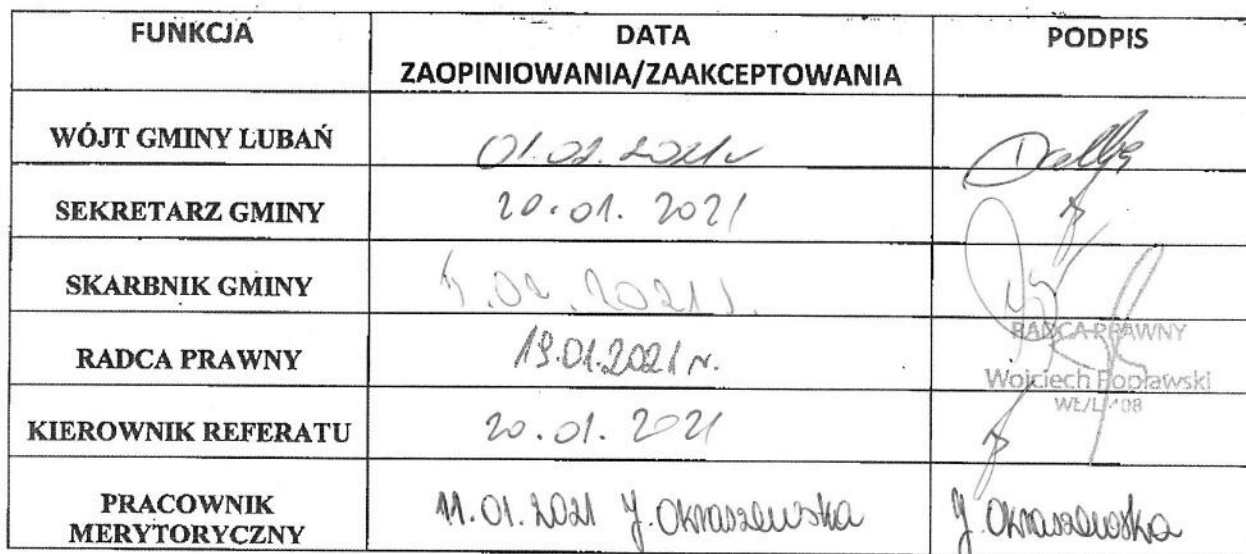 FUNKCJA DATA PODPIS
ZAOPINIOWANIA/ZAAKCEPTOWANIA
WÓJT GMINY LUBAŃ 01.02.2021r
SEKRETARZ GMINY 20.01.2021
SKARBNIK GMINY .02.2021
RADCA PRAWNY 19.01.2021 r. RADCA PRAWNY
Wojciech Popławski
KIEROWNIK REFERATU 20.01.2021
PRACOWNIK
MERYTORYCZNY 11.01.2021 J. Okraszewska J. Okraszewska